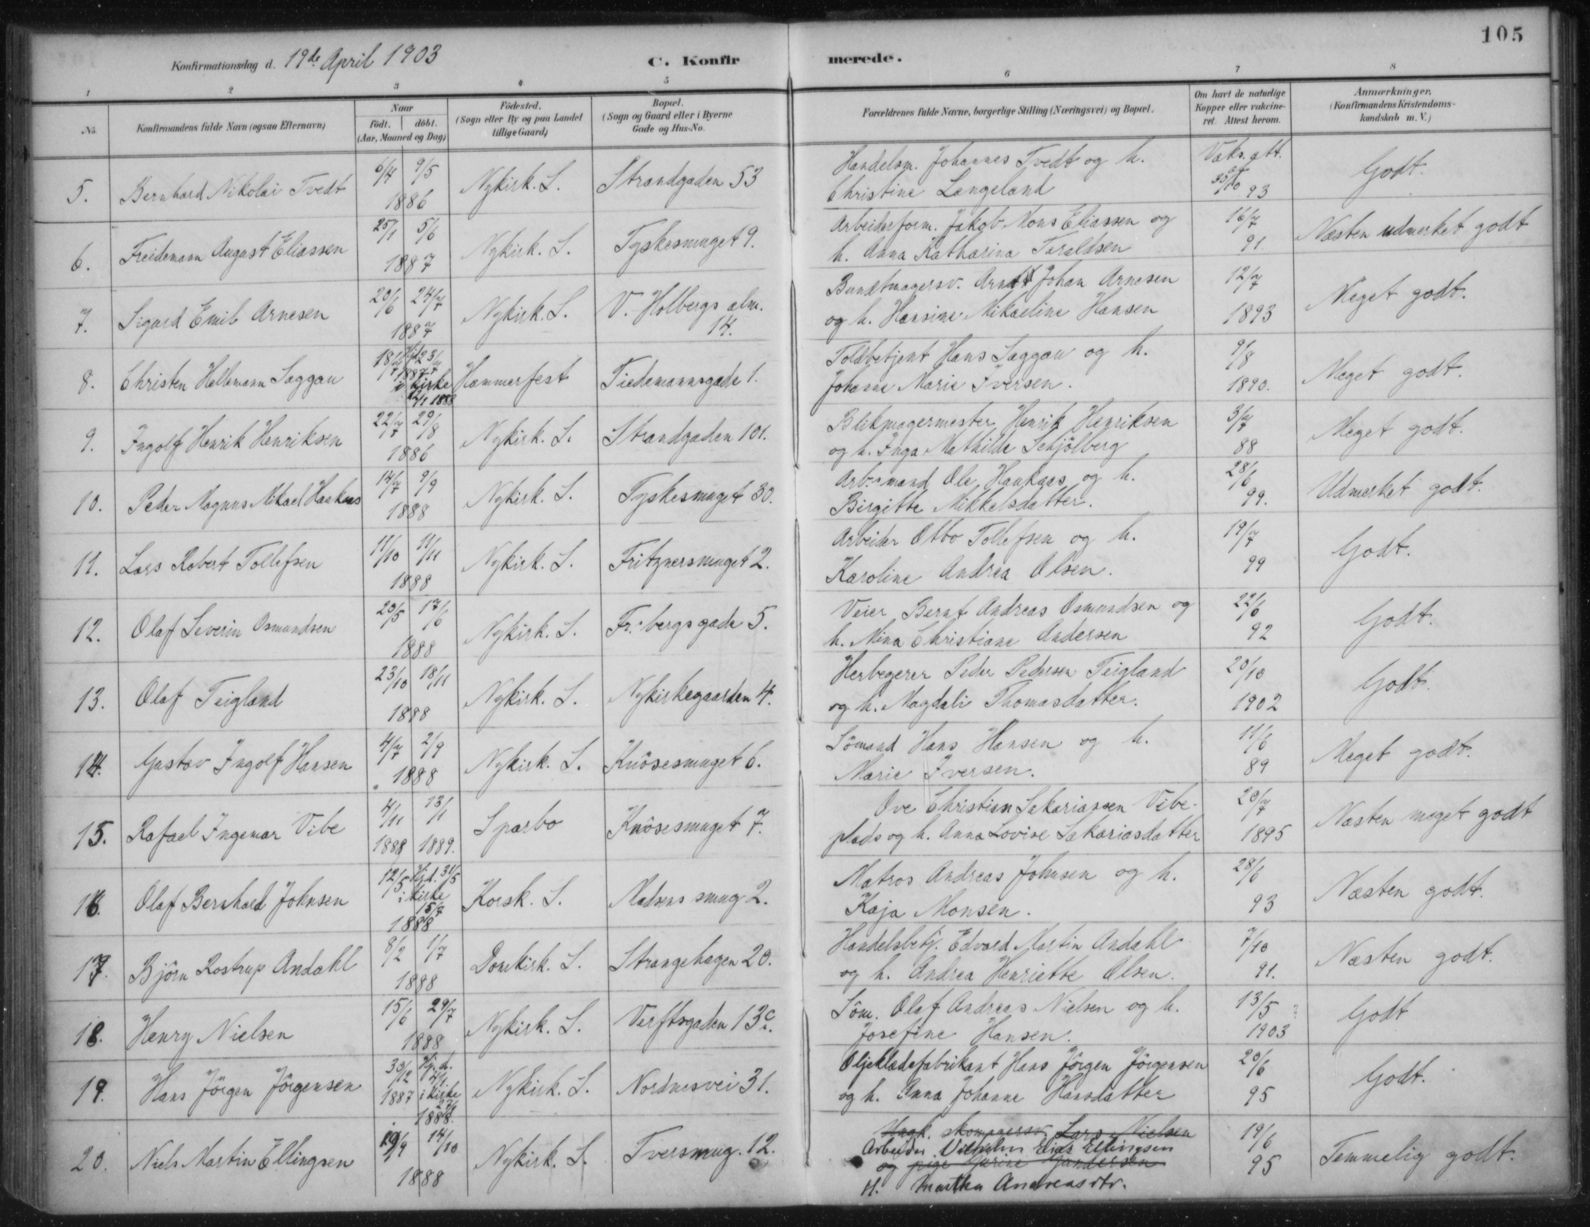 105
Konfirmationsdag d. 19de April 1903
C. Konfirmerede.
1 2 3 4 5 6 7 8
No.
Konfirmandens fulde Navn (ogsaa Efternavn)
Naar
Født. døbt.
(Aar, Maaned og Dag)
Fødested.
(Sogn eller By og paa Landet
tillige Gaard)
Bopæl.
(Sogn og Gaard eller i Byerne
Gade og Hus-No.
Forældrenes fulde Navne, borgerlige Stilling (Næringsvei) og Bopæl.
Om havt de naturlige
Kopper eller vakcine-
ret. Attest herom.
Anmærkninger.
(Konfirmandens Kristendoms-
kundskab m. V.)
5. Bernhard Nikolai Tvedt 6/4 9/5 1886 Nykirk. S. Strandgaden 53
Handelsm. Johannes Tvedt og h.
Christine Langeland
Vaks. att. 93 Godt.
6. Freidemann August Eliassen 25/1 5/6 1887 Nykirk. S. Tyskesmuget 9.
Arbeiderform. Jakob Mons Eliassen og
h. Anna Katharina Taraldsen
16/7 91 Næsten udmerket godt
7. Sigurd Emil Arnesen 20/6 24/7 1887 Nykirk. S. V. Holbergs alm. 14.
Buntmagersv. Johan Arnesen
og h. Hansine Mikaeline Hansen
12/7 1893 Meget godt.
8. Christen Hellemann Saggau 1887 i kirke 1888 Hammerfest Tiedemannsgade 1.
Toldbetjent Hans Saggau og h.
Johanne Marie Iversen.
9/8 1890. Meget godt.
9. Ingolf Henrik Henriksen 22/7 29/8 1886 Nykirk. S. Strandgaden 101.
Blikmagermester Henrik Henriksen
og h. Inga Mathilde Schjølberg
3/7 88 Meget godt.
10. Peder Magnus Mikael Haukaas 14/7 9/9 1888 Nykirk. S. Tyskesmuget 30.
Arb.mand Ole Haukaas og h.
Birgitte Mikkelsdatter.
28/6 99. Udmerket godt.
11. Lars Robert Tollefsen 11/10 11/11 1888 Nykirk. S. Fritznersmuget 2.
Arbeider Otto Tollefsen og h.
Karoline Andrea Olsen.
19/7 99 Godt.
12. Olaf Severin Osmundsen 20/5 17/6 1888 Nykirk. S. Fr. bergsgade 5.
Veier Bernt Andreas Osmundsen og
h. Mina Christiane Andersen
22/6 92 Godt.
13. Olaf Teigland 23/10 18/11 1888 Nykirk. S. Nykirkegaarden 4.
Herbegerer Peder Pedersen Teigland
og h. Magdeli Thomasdatter.
20/10 1902 Godt.
14. Gustav Ingolf Hansen 4/7 2/9 1888 Nykirk. S. Knøsesmuget 6.
Sømand Hans Hansen og h.
Marie Iversen.
11/6 89 Meget godt.
15. Rafael Ingemar Vibe 4/11 1888 13/1 1889. Sparbo Knøsesmuget 7.
Ove Christian Sakariassen Vibe-
plads og h. Anna Lovise Sakariasdatter
20/7 1895 Næsten meget godt
16. Olaf Bernhard Johnsen 12/5 Hjd. 31/5 i kirke 15/7 1888 Korsk. S. Madsens smug 2.
Matros Andreas Johnsen og h.
Kaja Monsen.
28/6 93 Næsten godt.
17. Bjørn Rostrup Andahl 8/2 1/7 1888 Domkirk. S. Strangehagen 20.
Handelsbetj. Edvard Martin Andahl
og h. Andrea Henriette Olsen.
7/10 91. Næsten godt.
18. Henry Nielsen 15/6 29/7 1888 Nykirk. S. Verftsgaden 13c.
Søm. Olaf Andreas Nielsen og h.
Josefine Hansen.
13/5 1903 Godt
19. Hans Jørgen Jørgensen 1887 i kirke 1888. Nykirk. S. Nordnesvei 31.
Oljeklædefabrikant Hans Jørgen Jørgensen
og h. Anna Johanne Hansdatter
20/6 95 Godt.
20. Niels Martin Ellingsen 19/9 14/10 1888 Nykirk. S. Tversmug. 12.
Lars Nielsen
Arbeider Vilhelm Elias Ellingsen
og pige
H. Martha Andreasdtr.
19/6 95 Temmelig godt.